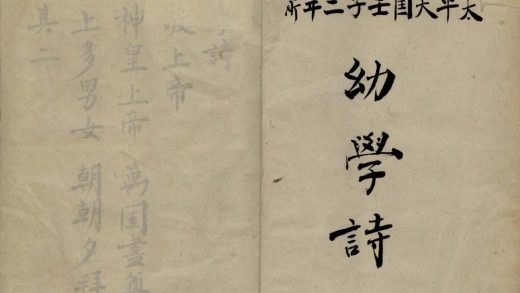 太平天囯壬子二年
幼學詩
學詩
敬上帝
神皇上帝 萬囯盡尊
上多男女 朝朝夕拜
其二